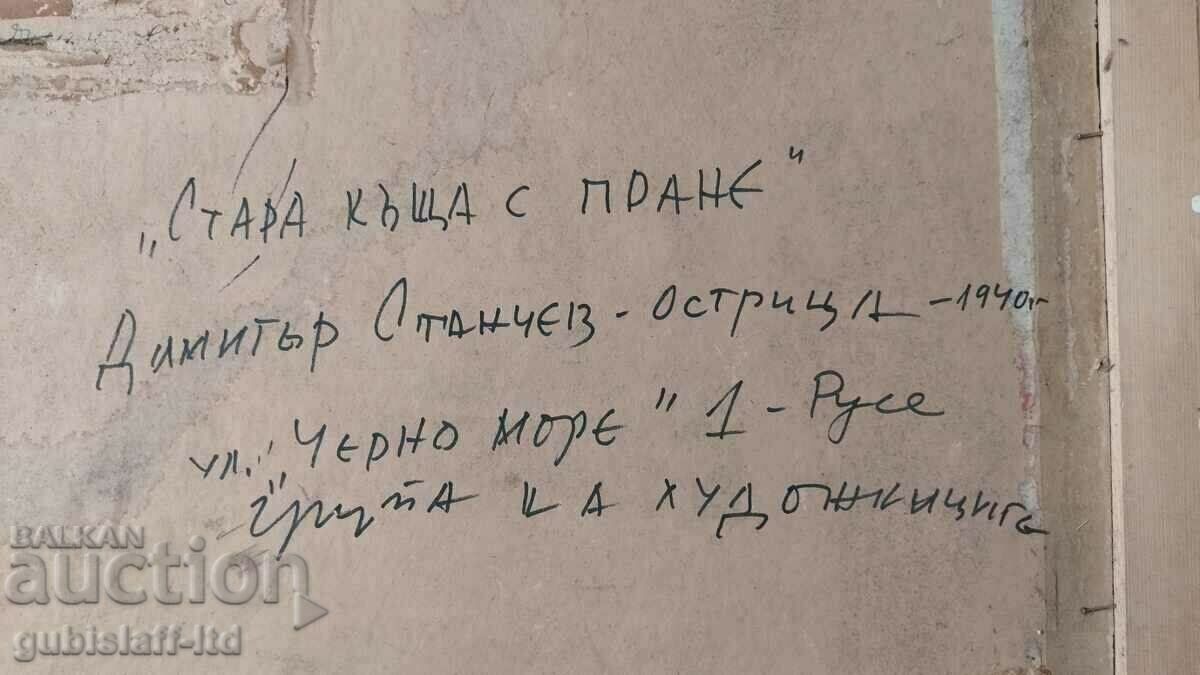 „СТАРА КЪЩА С ПРАНЕ"
ДИМИТЪР СТАНЧЕВ - ОСТРИЦА - 1940г
ул. „ЧЕРНО МОРЕ" 1 - Русе
група НА ХУДОЖНИЦИТЕ
BALKAN
auction
gubislaff-ltd